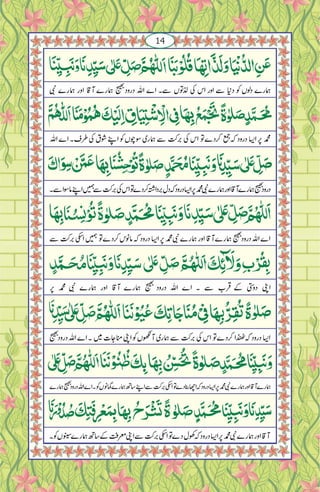 14
عَنِ الدُّنْيَا وَلَذَّاتِهَا قُلُوْبَنَا اَللّٰهُمَّ صَلِّ عَلٰى سَيِّدِنَا وَنَبِيِّنَا
ہمارے دلوں کو دنیا سے اور اس کی لذتوں سے۔ اے اللہ درود بھیج ہمارے آقا اور ہمارے نبی
مُحَمَّدٍ صَلٰوةً تَجْمَعُ بِهَا فِى الْاِشْتِيَاقِ اِلَيْكَ هُمُوْمَنَا اَللّٰهُمَّ
محمد پر ایسا درود کہ جمع کر دے تو اس کی برکت سے ہماری سوچوں کو اپنے شوق کی طرف۔ اے اللہ
صَلِّ عَلٰى سَيِّدِنَا وَنَبِيِّنَا مُحَمَّدٍ صَلٰوةً تُوْحِشُنَا بِهَا عَمَّنْ سِوَاكَ
درود بھیج ہمارے آقا اور ہمارے نبی محمد پر ایسا درود کہ دل برداشتہ کر دے تو اس کی برکت سے ہمیں اپنے ماسوا سے۔
اَللّٰهُمَّ صَلِّ عَلٰى سَيِّدِنَا وَنَبِيِّنَا مُحَمَّدٍ صَلٰوةً تُوْنِسُنَا بِهَا
اے اللہ درود بھیج ہمارے آقا اور ہمارے نبی محمد پر ایسا درود کہ مانوس کر دے تو ہمیں اسکی برکت سے
بِقُرْبِ وَلَآئِكَ اَللّٰهُمَّ صَلِّ عَلٰى سَيِّدِنَا وَنَبِيِّنَا مُحَمَّدٍ
اپنی دوستی کے قرب سے۔ اے اللہ درود بھیج ہمارے آقا اور ہمارے نبی محمد پر
صَلٰوةً تُقِرُّ بِهَا فِىْ مُنَاجَاتِكَ عُيُوْنَنَا اَللّٰهُمَّ صَلِّ عَلٰى سَيِّدِنَا
ایسا درود کہ ٹھنڈا کر دے تو اس کی برکت سے ہماری آنکھوں کو اپنی مناجات میں۔ اے اللہ درود بھیج
وَنَبِيِّنَا مُحَمَّدٍ صَلٰوةً تُحَسِّنُ بِهَا بِكَ ظُنُوْنَنَا اَللّٰهُمَّ صَلِّ عَلٰى
ہمارے آقا اور ہمارے نبی محمد پر ایسا درود کہ اچھا بنا دے تو اسکی برکت سے اپنے ساتھ ہمارے گمانوں کو۔ اے اللہ درود بھیج ہمارے
سَيِّدِنَا وَنَبِيِّنَا مُحَمَّدٍ صَلٰوةً تَشْرَحُ بِهَا بِمَعْرِفَتِكَ صُدُوْرَنَا
آقا اور ہمارے نبی محمد پر ایسا درود کہ کھول دے تو اسکی برکت سے اپنی معرفت کے ساتھ ہمارے سینوں کو۔